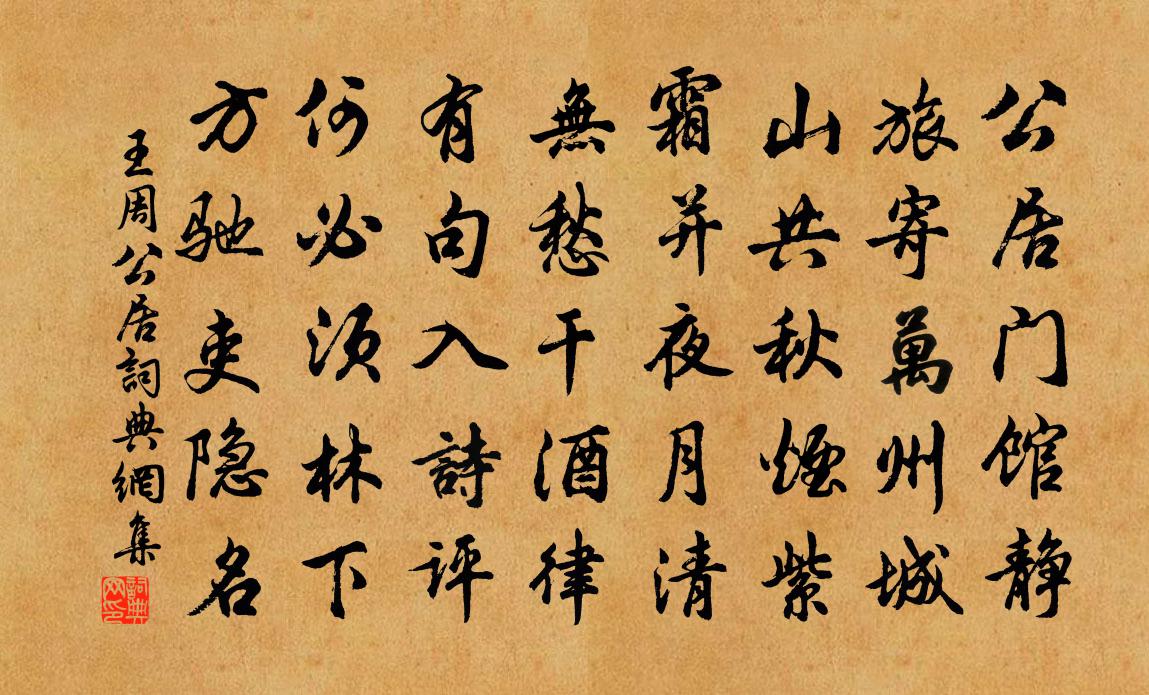 公居门馆静
旅寄萬州城
山共秋煙紫
霜并夜月清
無愁干酒律
有句入詩評
何必须林下
方驰吏隐名
王周公居詞典網集
詞典网印